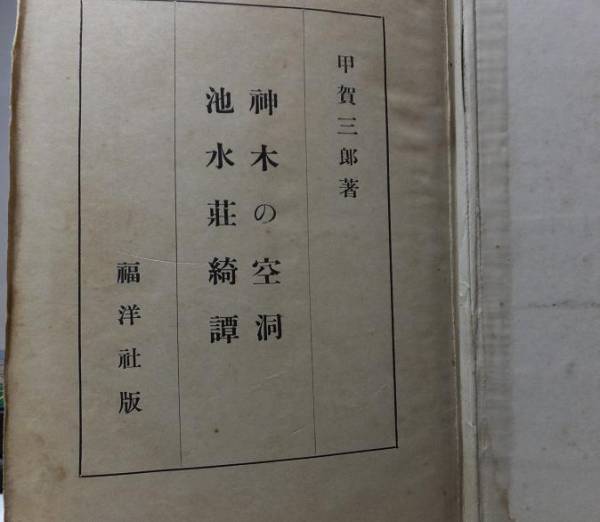 甲賀三郎著
神木の空洞
池水荘綺譚
福洋社版